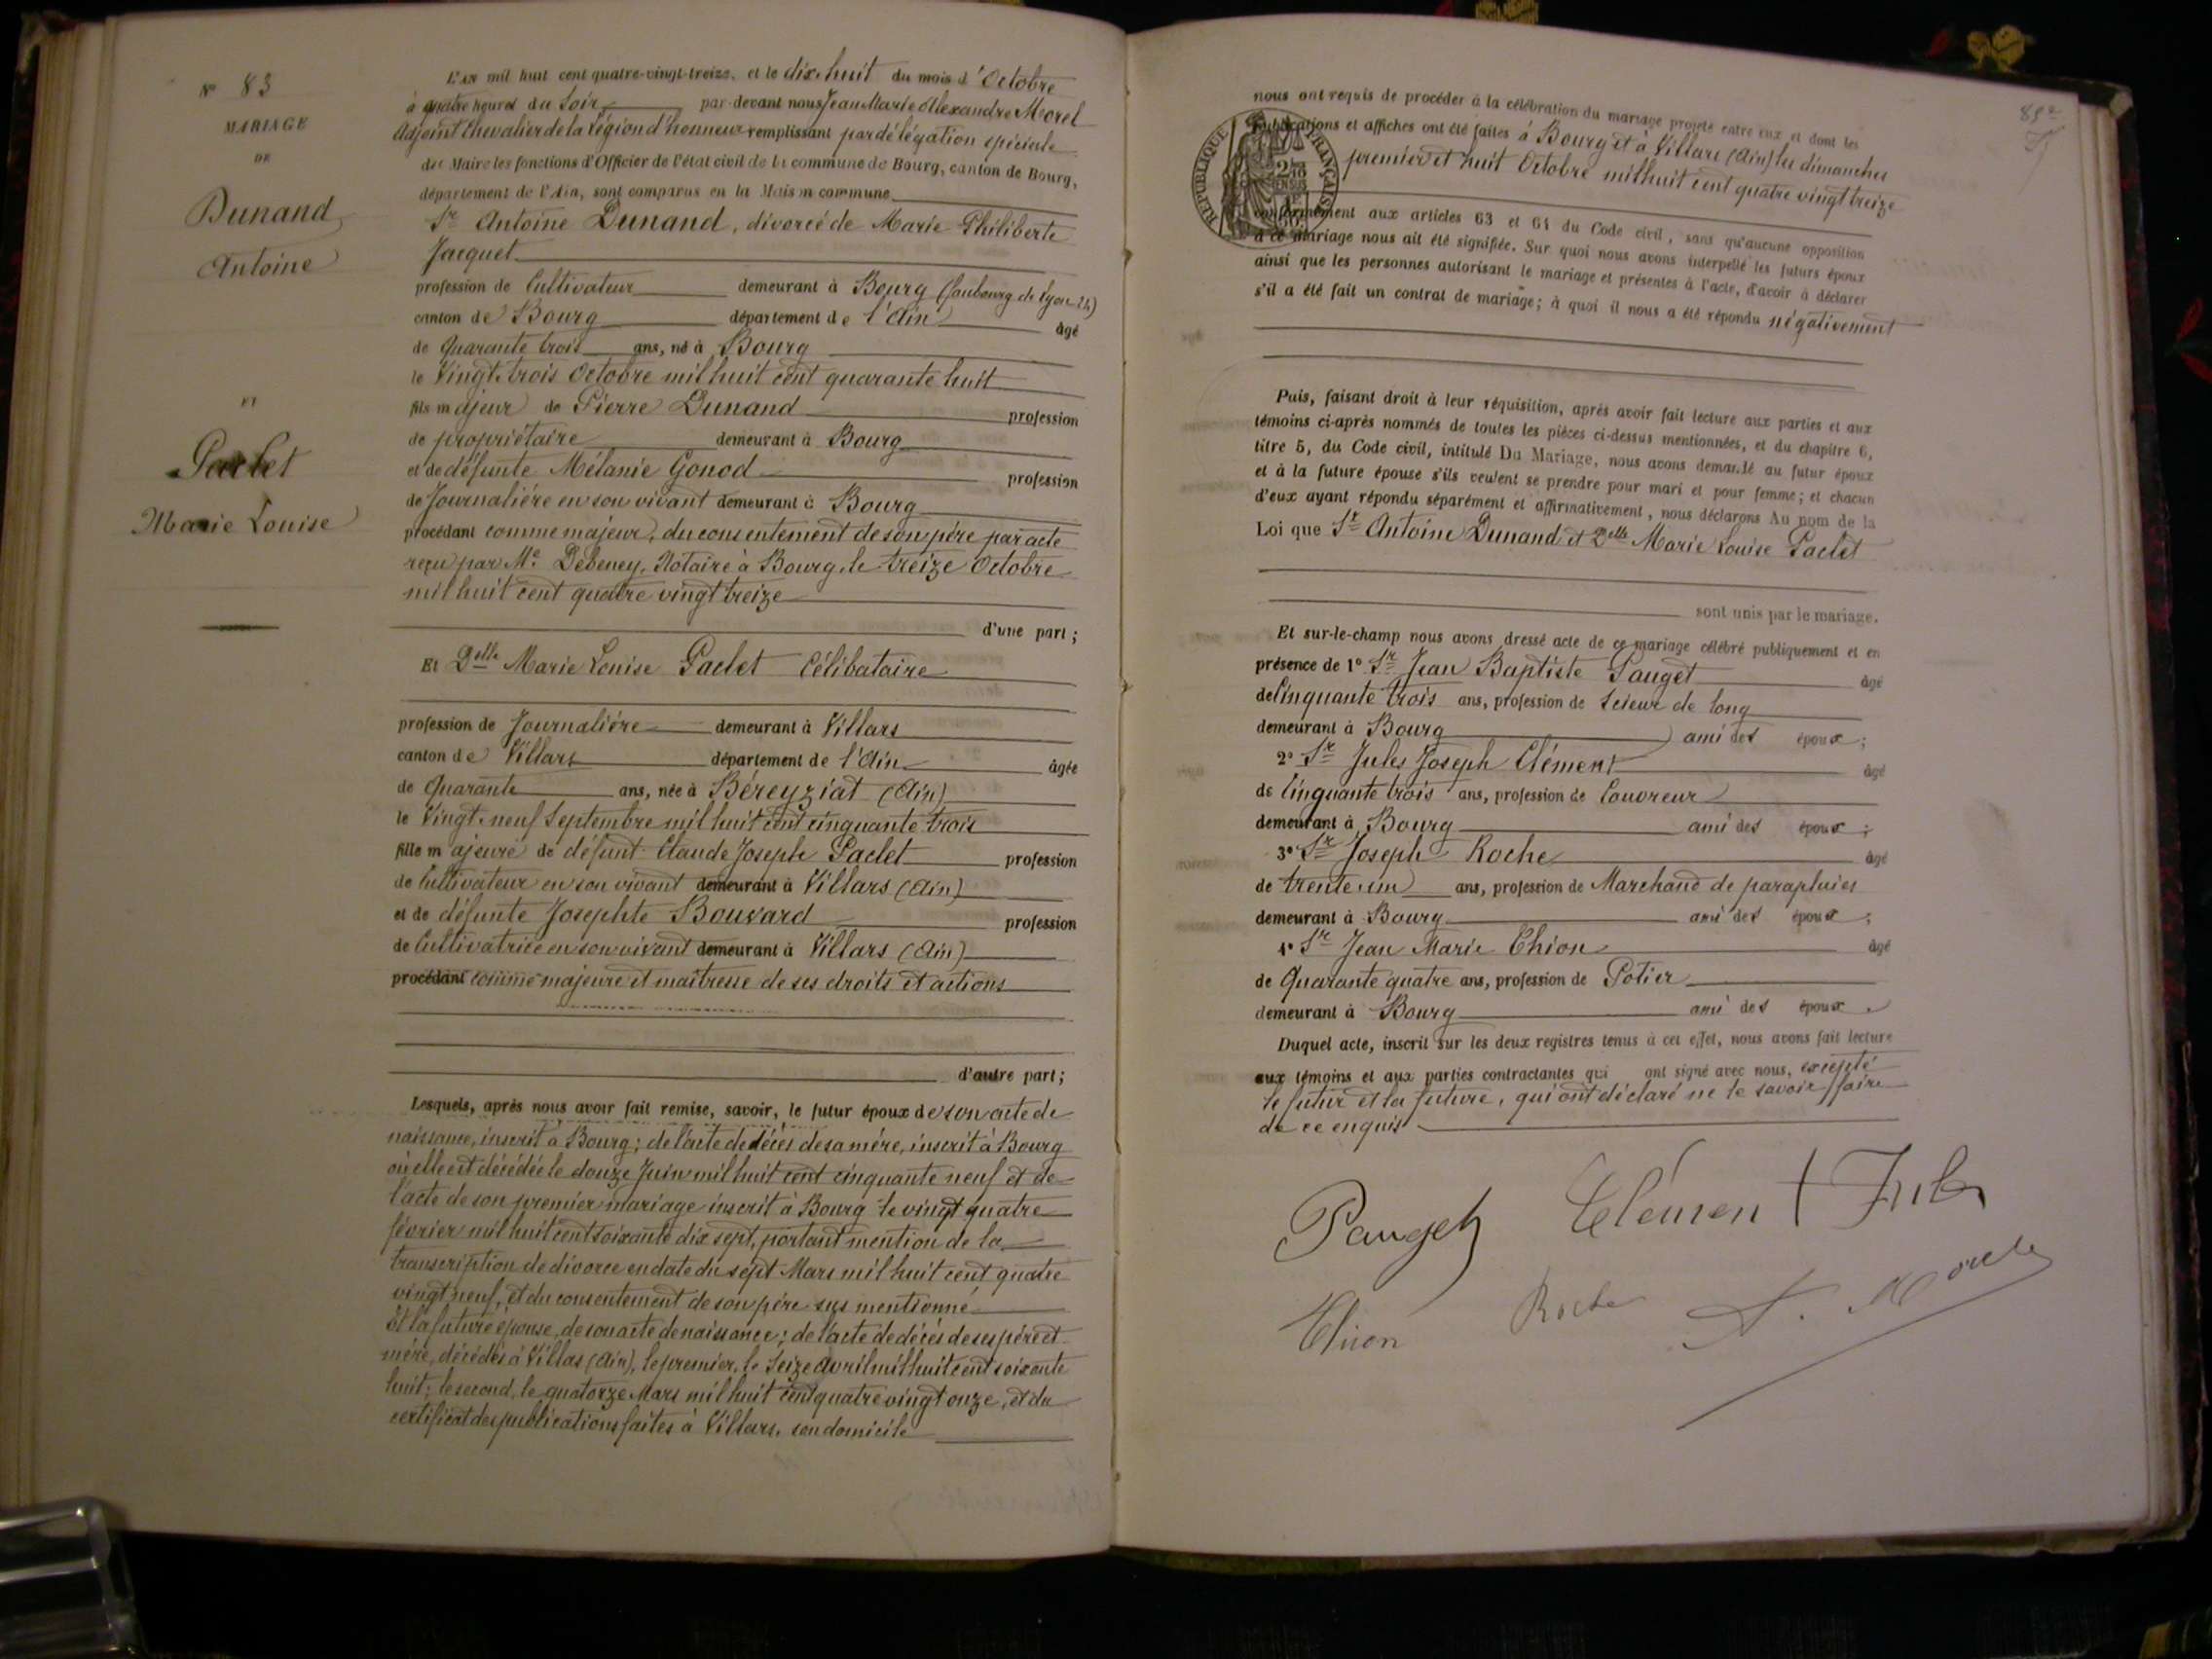 N° 83
MARIAGE
DE
Dunand
Antoine
ET
Paclet
Marie Louise
L'AN mil huit cent quatre-vingt-treize, et le dix-huit du mois d'Octobre
à quatre heures du Soir par-devant nous Jean Marie Alexandre Morel
Adjoint Chevalier de la Légion d'honneur remplissant par délégation spéciale
du Maire les fonctions d'Officier de l'état civil de la commune de Bourg, canton de Bourg,
département de l'Ain, sont comparus en la Maison commune
Sr Antoine Dunand, divorcé de Marie Philiberte
Jacquet
profession de Cultivateur demeurant à Bourg (faubourg de Lyon 24)
canton de Bourg département de l'Ain âgé
de Quarante trois ans, né à Bourg
le Vingt-trois Octobre mil huit cent quarante huit
fils majeur de Pierre Dunand profession
de propriétaire demeurant à Bourg
et de défunte Mélanie Gonod profession
de Journalière en son vivant demeurant à Bourg
procédant comme majeur, du consentement de son père par acte
reçu par Me Debeney, Notaire à Bourg, le treize Octobre
mil huit cent quatre vingt treize
d'une part;
Et Delle Marie Louise Paclet Célibataire
profession de Journalière demeurant à Villars
canton de Villars département de l'Ain âgée
de Quarante ans, née à Béreyziat (Ain)
le Vingt-neuf Septembre mil huit cent cinquante trois
fille majeure de défunt Claude Joseph Paclet profession
de Cultivateur en son vivant demeurant à Villars (Ain)
et de défunte Josephte Bouvard profession
de Cultivatrice en son vivant demeurant à Villars (Ain)
procédant comme majeure et maîtresse de ses droits et actions
d'autre part;
Lesquels, après nous avoir fait remise, savoir, le futur époux de son acte de
naissance, inscrit à Bourg; de l'acte de décès de sa mère, inscrit à Bourg
où elle est décédée le douze Juin mil huit cent cinquante neuf et de
l'acte de son premier mariage inscrit à Bourg le vingt quatre
février mil huit cent soixante dix sept, portant mention de la
transcription de divorce en date du sept Mars mil huit cent quatre
vingt neuf, et du consentement de son père sus mentionné
Et la future épouse, de son acte de naissance; de l'acte de décès de ses père et
mère, décédés à Villas (Ain), le premier, le Seize Avril mil huit cent soixante
huit; le second, le quatorze Mars mil huit cent quatre vingt onze, et du
certificat des publications faites à Villars, son domicile
nous ont requis de procéder à la célébration du mariage projeté entre eux et dont les
publications et affiches ont été faites à Bourg et à Villars (Ain) les dimanches
premier et huit Octobre mil huit cent quatre vingt treize
RÉPUBLIQUE FRANÇAISE
conformément aux articles 63 et 64 du Code civil, sans qu'aucune opposition
à ce mariage nous ait été signifiée. Sur quoi nous avons interpellé les futurs époux
ainsi que les personnes autorisant le mariage et présentes à l'acte, d'avoir à déclarer
s'il a été fait un contrat de mariage; à quoi il nous a été répondu négativement
Puis, faisant droit à leur réquisition, après avoir fait lecture aux parties et aux
témoins ci-après nommés de toutes les pièces ci-dessus mentionnées, et du chapitre 6,
titre 5, du Code civil, intitulé Du Mariage, nous avons demandé au futur époux
et à la future épouse s'ils veulent se prendre pour mari et pour femme; et chacun
d'eux ayant répondu séparément et affirmativement, nous déclarons Au nom de la
Loi que Sr Antoine Dunand et Delle Marie Louise Paclet
sont unis par le mariage.
Et sur-le-champ nous avons dressé acte de ce mariage célébré publiquement et en
présence de 1° Sr Jean Baptiste Pauget âgé
de Cinquante trois ans, profession de Scieur de long
demeurant à Bourg ami des époux;
2° Sr Jules Joseph Clément âgé
de Cinquante trois ans, profession de Couvreur
demeurant à Bourg ami des époux;
3° Sr Joseph Roche âgé
de trente un ans, profession de Marchand de parapluies
demeurant à Bourg ami des époux;
4° Sr Jean Marie Chion âgé
de Quarante quatre ans, profession de Potier
demeurant à Bourg ami des époux.
Duquel acte, inscrit sur les deux registres tenus à cet effet, nous avons fait lecture
aux témoins et aux parties contractantes qui ont signé avec nous, excepté
le futur et la future, qui ont déclaré ne le savoir faire
de ce enquis
Pauget Clément Jules
Chion Roche A. Morel